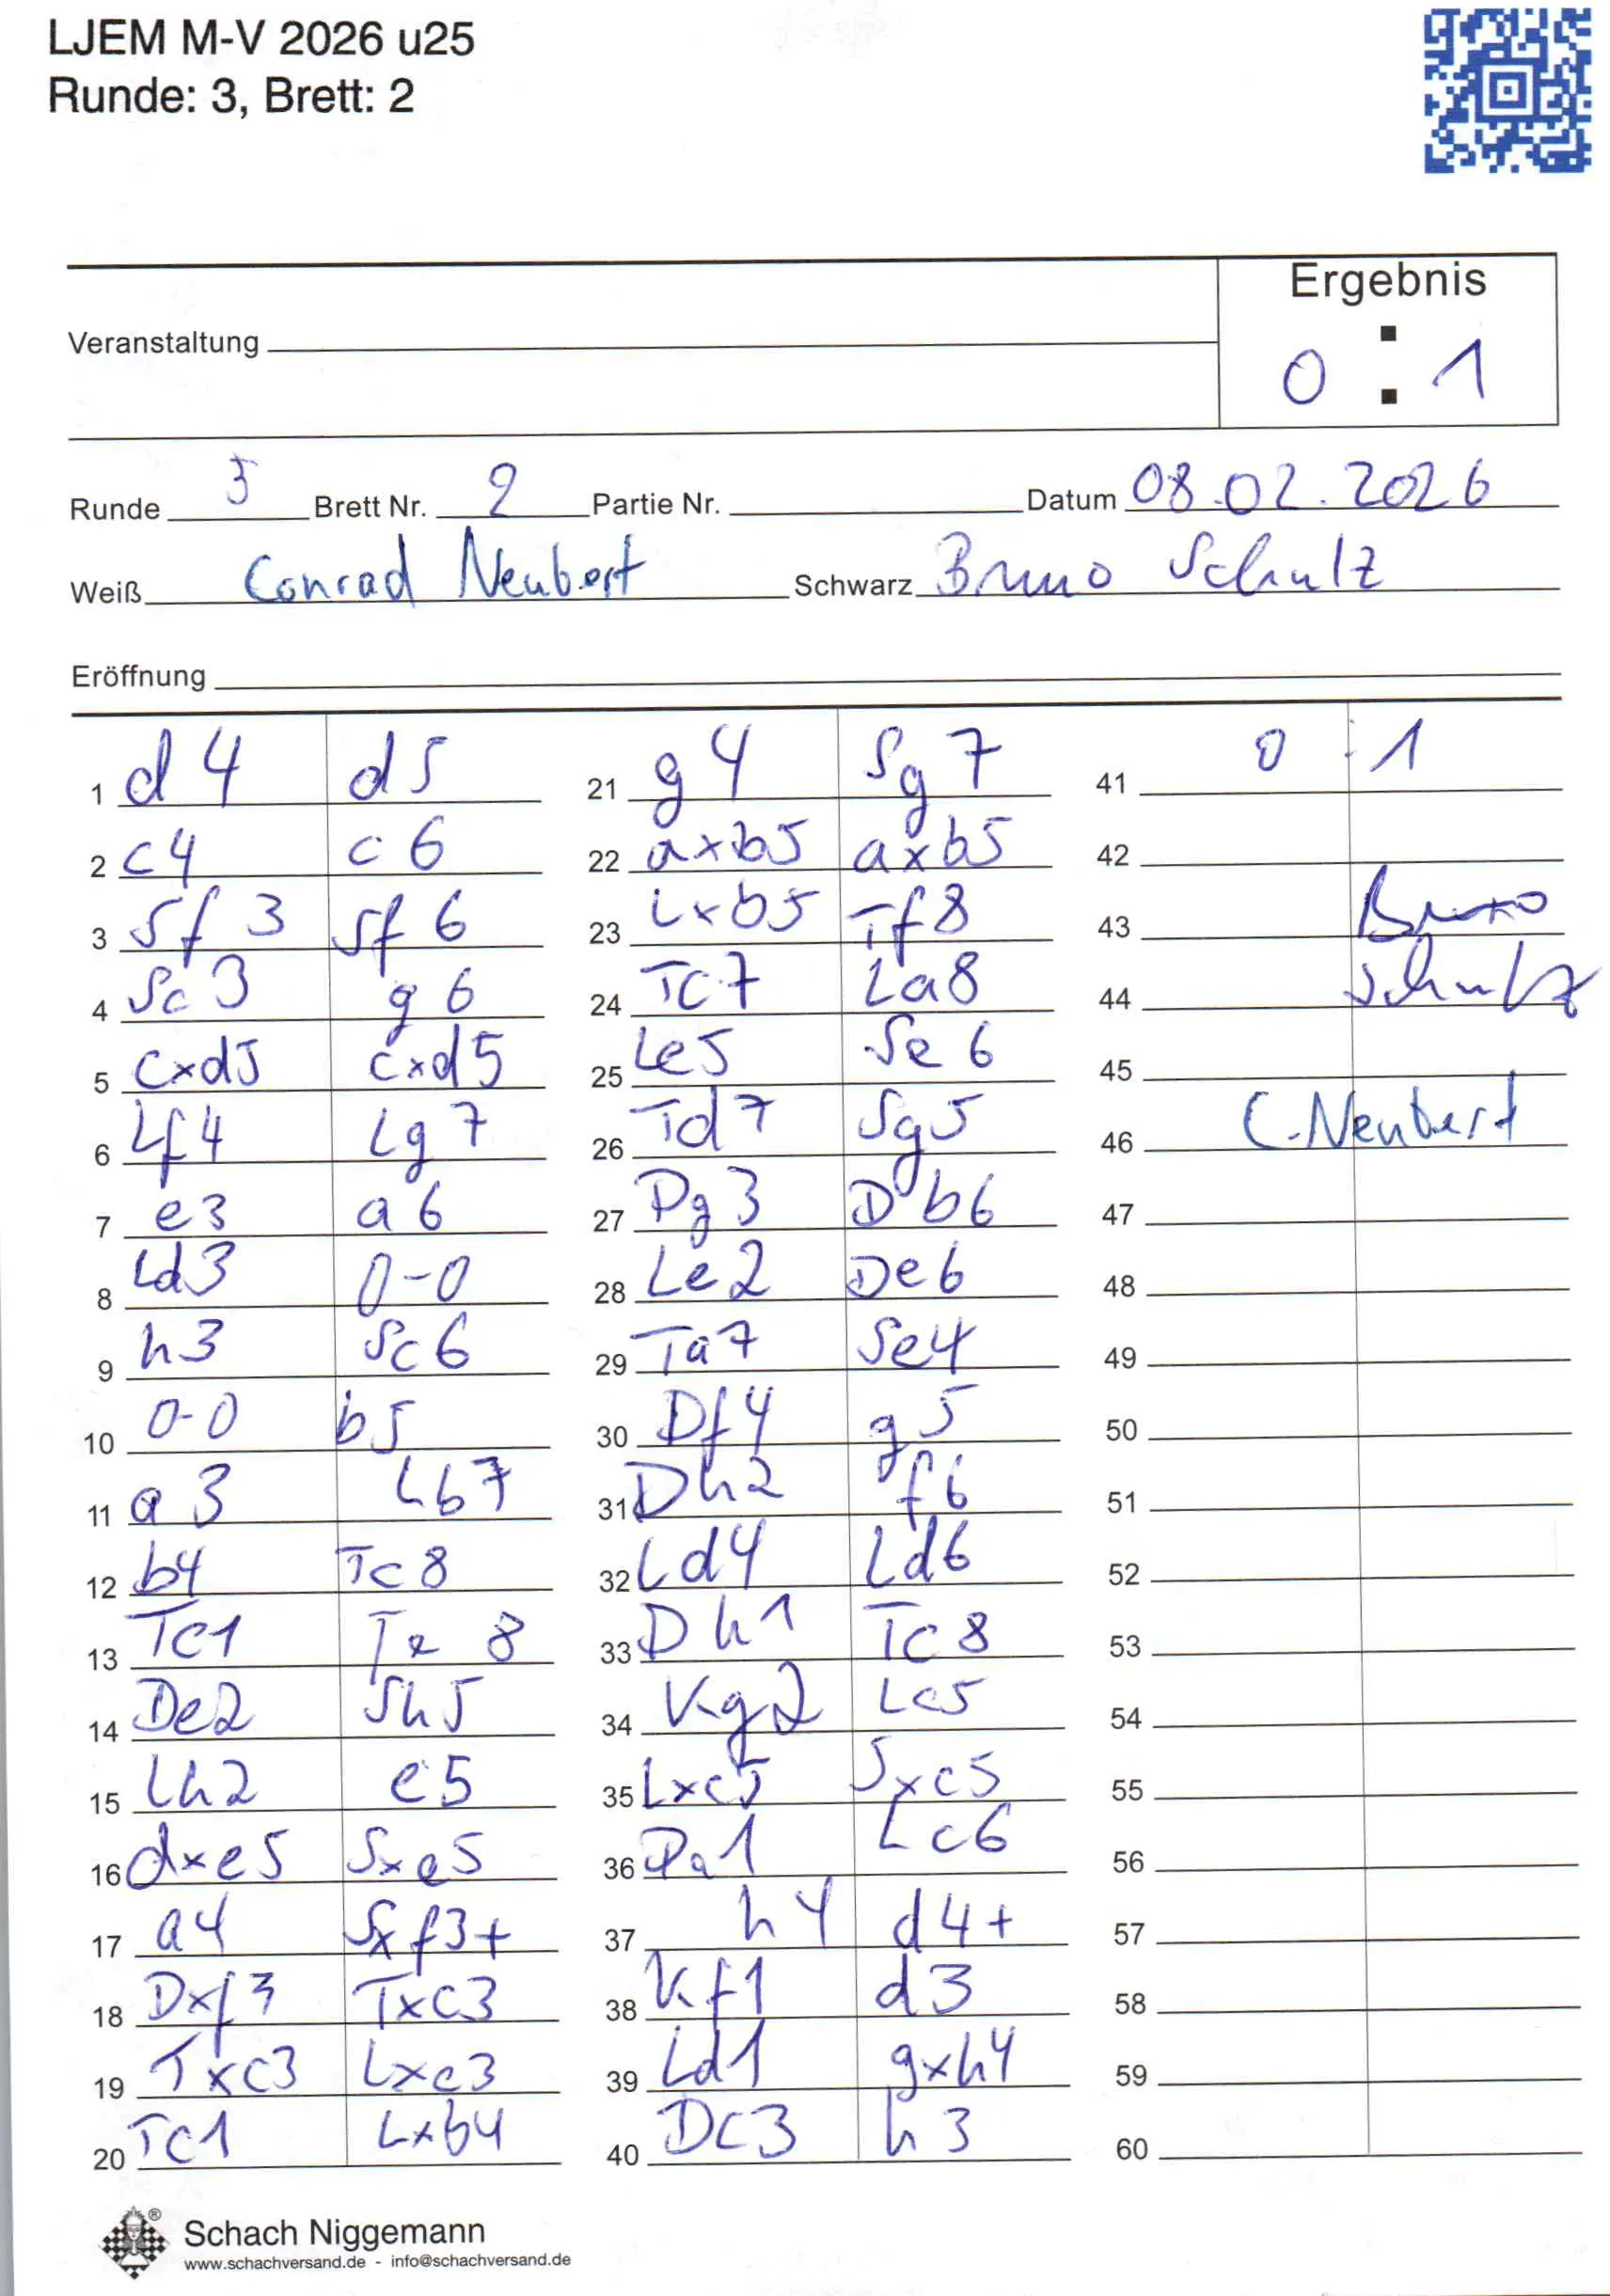 LJEM M-V 2026 u25
Runde: 3, Brett: 2
Ergebnis
Veranstaltung
0 : 1
Runde 3 Brett Nr. 2 Partie Nr. Datum 08.02.2026
Weiß Conrad Neubert Schwarz Bruno Schulz
Eröffnung
1 d4 d5
2 c4 c6
3 Sf3 Sf6
4 Sc3 g6
5 cxd5 cxd5
6 Lf4 Lg7
7 e3 a6
8 Ld3 0-0
9 h3 Sc6
10 0-0 b5
11 a3 Lb7
12 b4 Tc8
13 Tc1 Te8
14 De2 Sh5
15 Lh2 e5
16 dxe5 Sxe5
17 a4 Sxf3+
18 Dxf3 Txc3
19 Txc3 Lxc3
20 Tc1 Lxb4
21 g4 Sg7
22 axb5 axb5
23 Lxb5 Tf8
24 Tc7 La8
25 Le5 Se6
26 Td7 Sg5
27 Dg3 Db6
28 Le2 De6
29 Ta7 Se4
30 Df4 g5
31 Dh2 f6
32 Ld4 Ld6
33 Dh1 Tc8
34 Kg2 Lc5
35 Lxc5 Sxc5
36 Da1 Lc6
37 h4 d4+
38 Kf1 d3
39 Ld1 gxh4
40 Dc3 h3
41 0 : 1
42
43 Bruno
44 Schulz
45
46 C. Neubert
47
48
49
50
51
52
53
54
55
56
57
58
59
60
Schach Niggemann
www.schachversand.de - info@schachversand.de